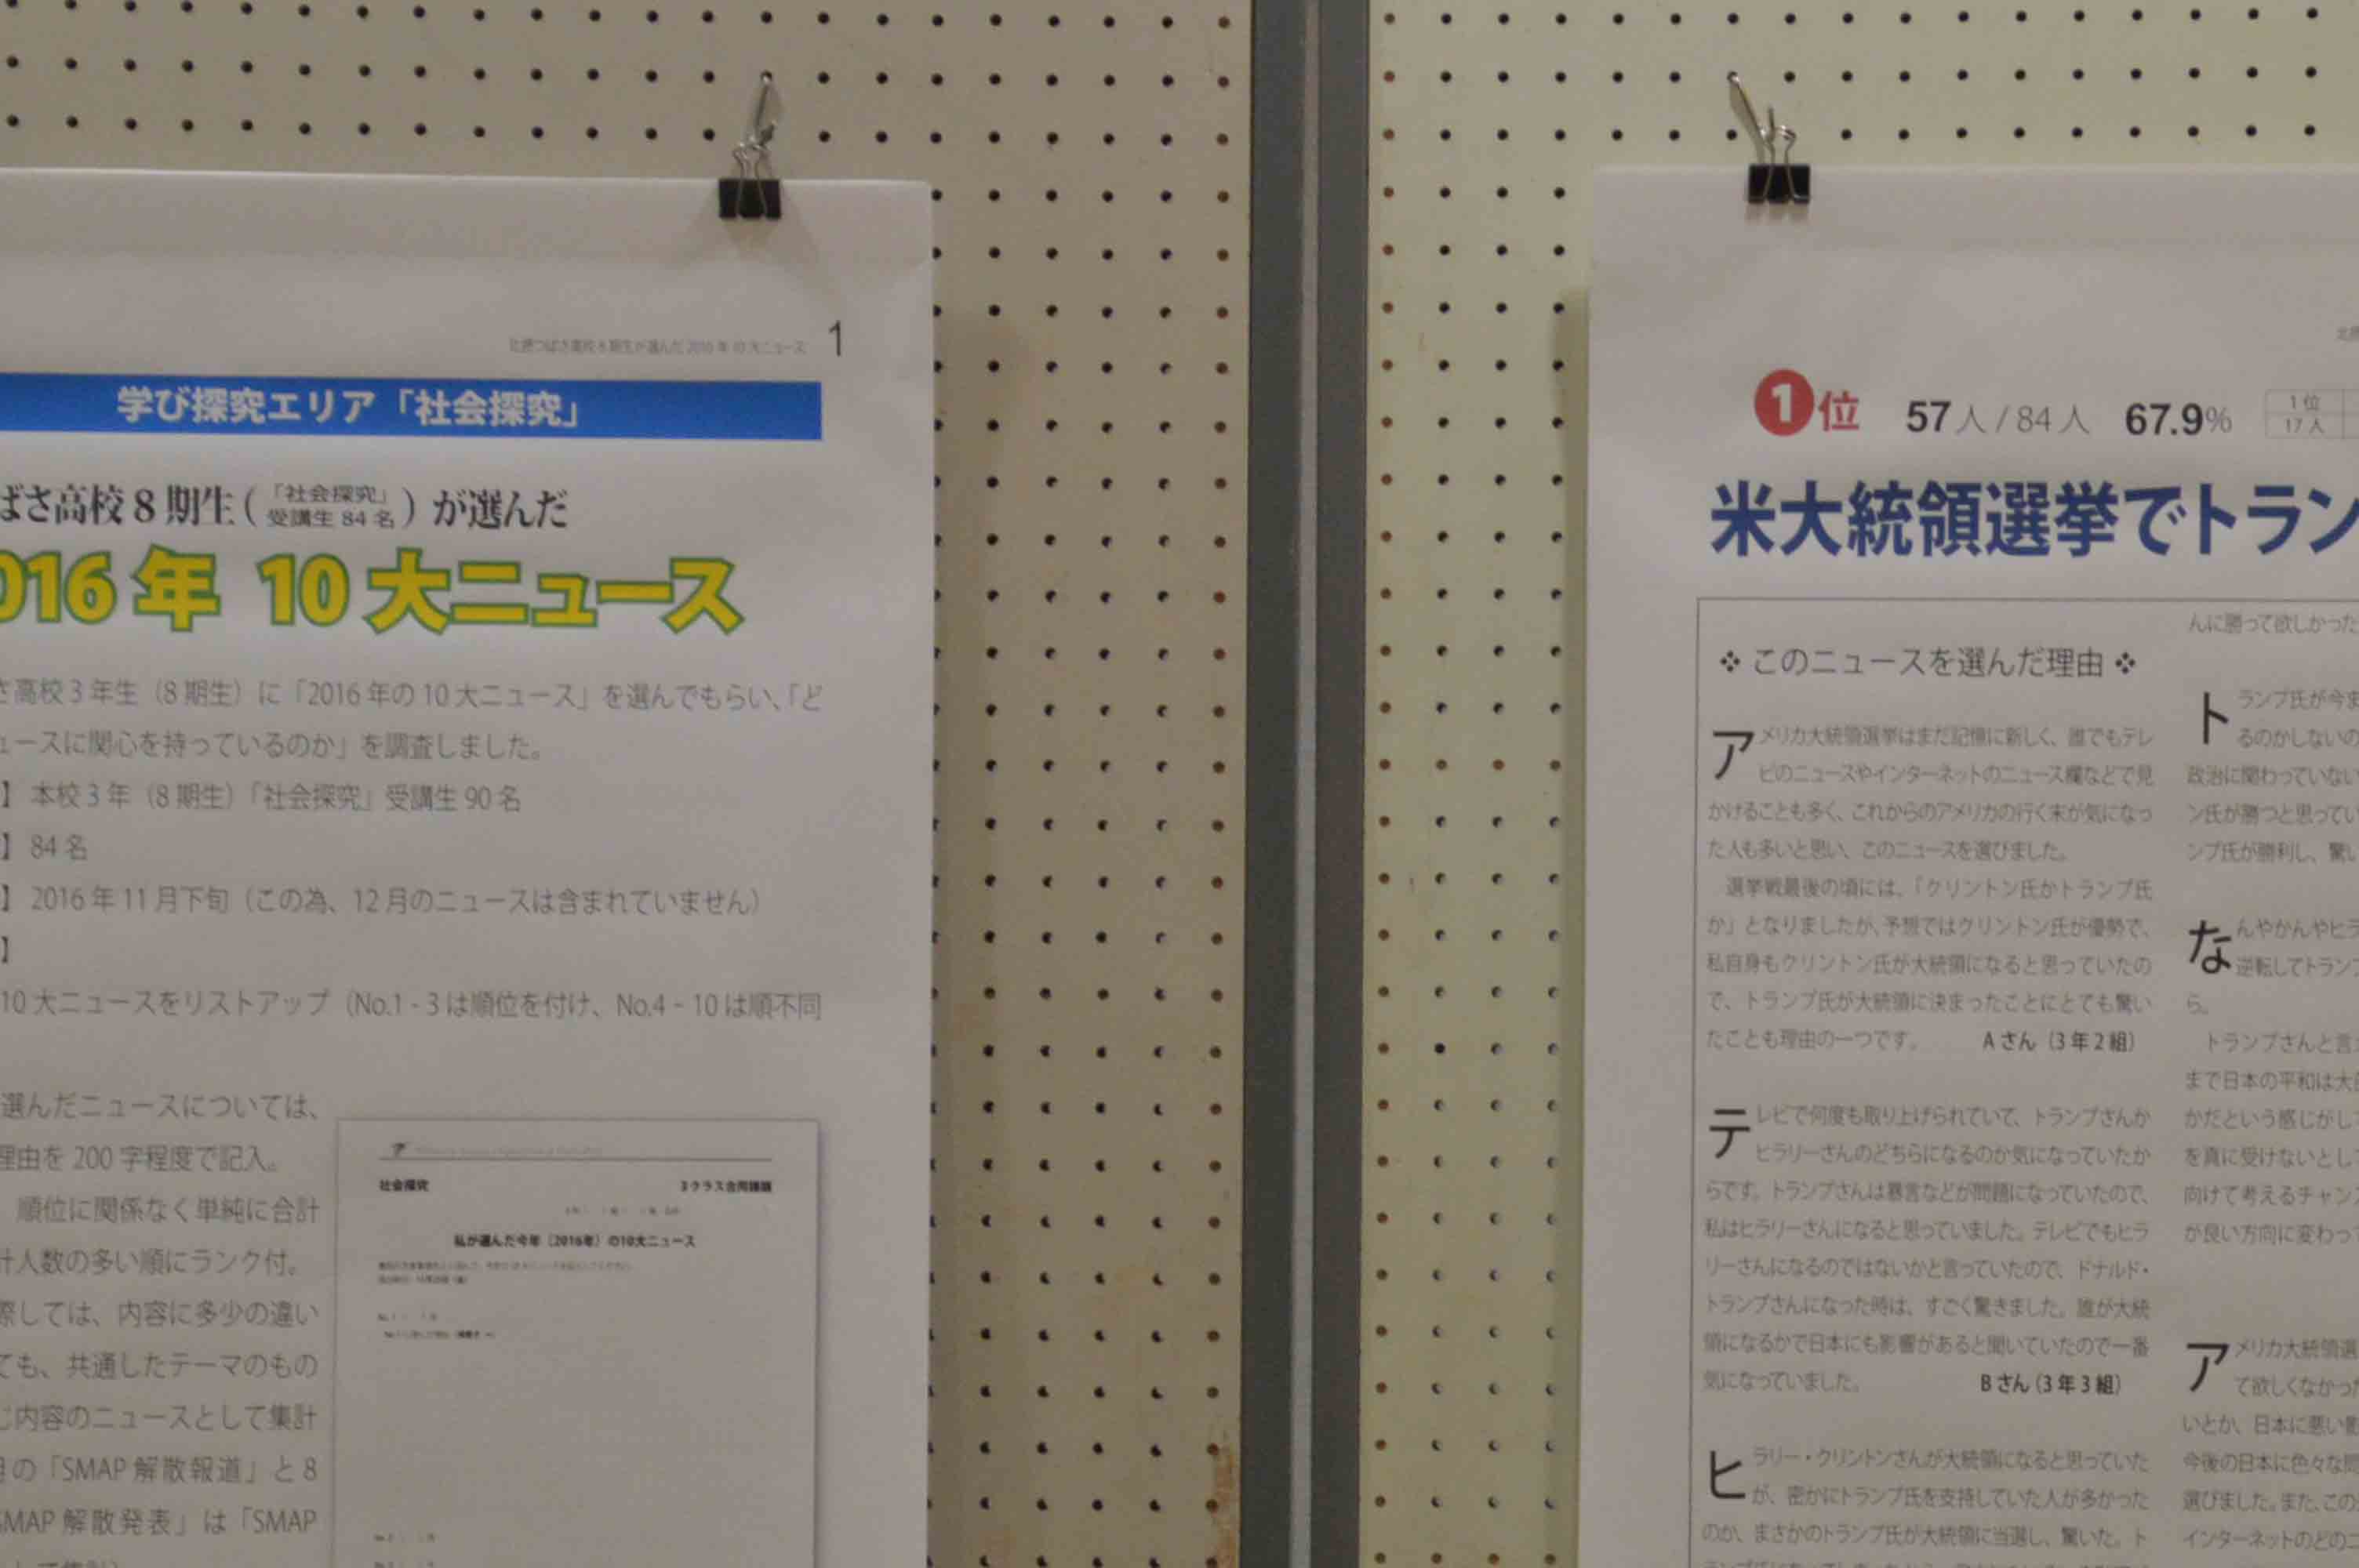 北摂つばさ高校8期生が選んだ2016年10大ニュース 1
学び探究エリア「社会探究」
ばさ高校8期生(「社会探究」受講生84名)が選んだ
016年 10大ニュース
さ高校3年生（8期生）に「2016年の10大ニュース」を選んでもらい、「ど
ュースに関心を持っているのか」を調査しました。
】本校3年（8期生）「社会探究」受講生90名
】84名
】2016年11月下旬（この為、12月のニュースは含まれていません）
】
10大ニュースをリストアップ（No.1 - 3は順位を付け、No.4 - 10は順不同
選んだニュースについては、
理由を200字程度で記入。
順位に関係なく単純に合計
計人数の多い順にランク付。
際しては、内容に多少の違い
ても、共通したテーマのもの
じ内容のニュースとして集計
月の「SMAP解散報道」と8
SMAP解散発表」は「SMAP
社会探究 3クラス合同課題
私が選んだ今年（2016年）の10大ニュース
1位 57人/84人 67.9%
1位
17人
米大統領選挙でトラン
❖ このニュースを選んだ理由 ❖
アメリカ大統領選挙はまだ記憶に新しく、誰でもテレ
ビのニュースやインターネットのニュース欄などで見
かけることも多く、これからのアメリカの行く末が気になっ
た人も多いと思い、このニュースを選びました。
選挙戦最後の頃には、「クリントン氏かトランプ氏
か」となりましたが、予想ではクリントン氏が優勢で、
私自身もクリントン氏が大統領になると思っていたの
で、トランプ氏が大統領に決まったことにとても驚い
たことも理由の一つです。 Aさん（3年2組）
テレビで何度も取り上げられていて、トランプさんか
ヒラリーさんのどちらになるのか気になっていたか
らです。トランプさんは暴言などが問題になっていたので、
私はヒラリーさんになると思っていました。テレビでもヒラ
リーさんになるのではないかと言っていたので、ドナルド・
トランプさんになった時は、すごく驚きました。誰が大統
領になるかで日本にも影響があると聞いていたので一番
気になっていました。 Bさん（3年3組）
ヒラリー・クリントンさんが大統領になると思っていた
が、密かにトランプ氏を支持していた人が多かった
のか、まさかのトランプ氏が大統領に当選し、驚いた。ト
んに勝って欲しかった
トランプ氏が今ま
るのかしないの
政治に関わっていない
ン氏が勝つと思ってい
ンプ氏が勝利し、驚い
なんやかんやヒラ
逆転してトランプ
ら。
トランプさんと言え
まで日本の平和は大
かだという感じがして
を真に受けないとし
向けて考えるチャンス
が良い方向に変わって
アメリカ大統領選
て欲しくなかった
いとか、日本に悪い影
今後の日本に色々な問
選びました。また、この
インターネットのどのニ